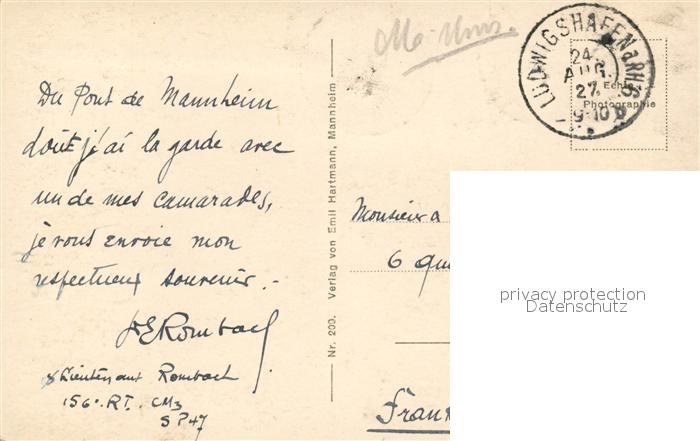 Du Pont de Mannheim
dont j'ai la garde avec
un de mes camarades,
je vous envoie mon
respectueux souvenir.-
Rombach
Lieutenant Rombach
156e. RT. CM3
SP 47
Nr. 200. Verlag von Emil Hartmann, Mannheim
LUDWIGSHAFEN a. RH.
24.
AUG.
27.
9-10
Echte
Photographie
Monsieur
6
privacy protection
Datenschutz